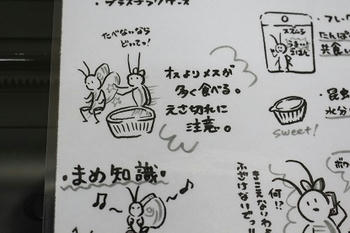 ・プラスチックケース
たべないなら
どいてっ!
オスよりメスが
多く食べる。
えさ切れに
注意。
・フレーク
スズムシ
たんぱ
共食い
・昆虫
水分
sweet!
・まめ知識・
何!?
きこえないわ
ふざけないでっ!!